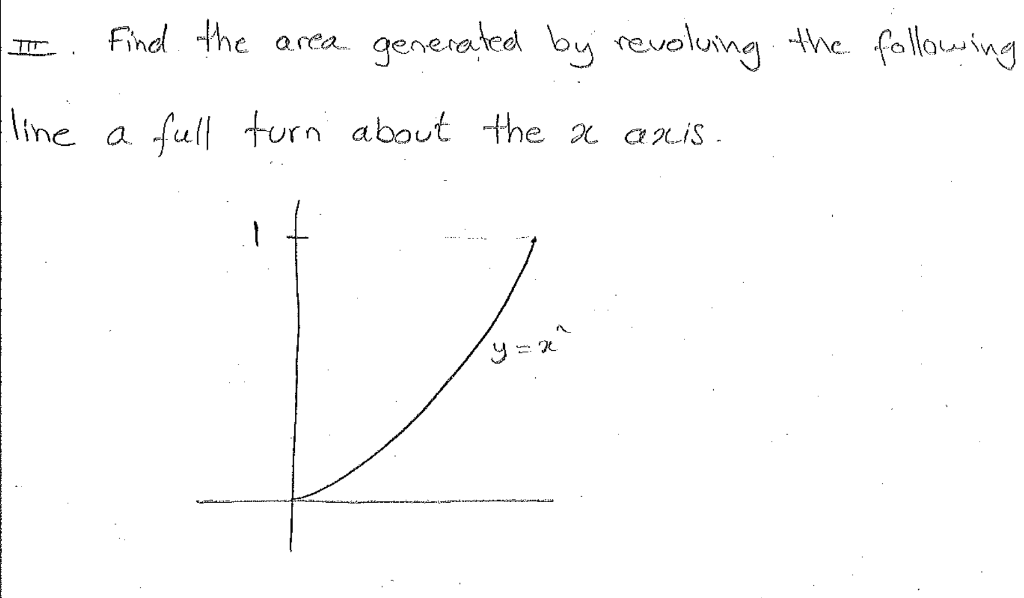 III. Find the area generated by revolving the following
line a full turn about the x axis.
1
y = x²